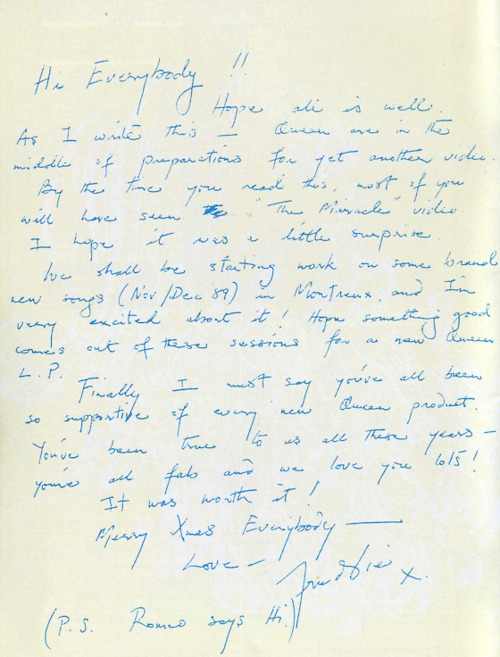 Hi Everybody !!
Hope all is well.
As I write this – Queen are in the
middle of preparations for yet another video.
By the time you read this, most of you
will have seen "The Miracle" video
I hope it was a little surprise.
We shall be starting work on some brand
new songs (Nov/Dec 89) in Montreux, and I'm
very excited about it! Hope something good
comes out of these sessions for a new Queen
L.P.
Finally I must say you've all been
so supportive of every new Queen product.
You've been true to us all these years –
you're all fab and we love you lots!
It was worth it!
Merry Xmas Everybody —
Love – Freddie x.
(P.S. Romeo says Hi.)